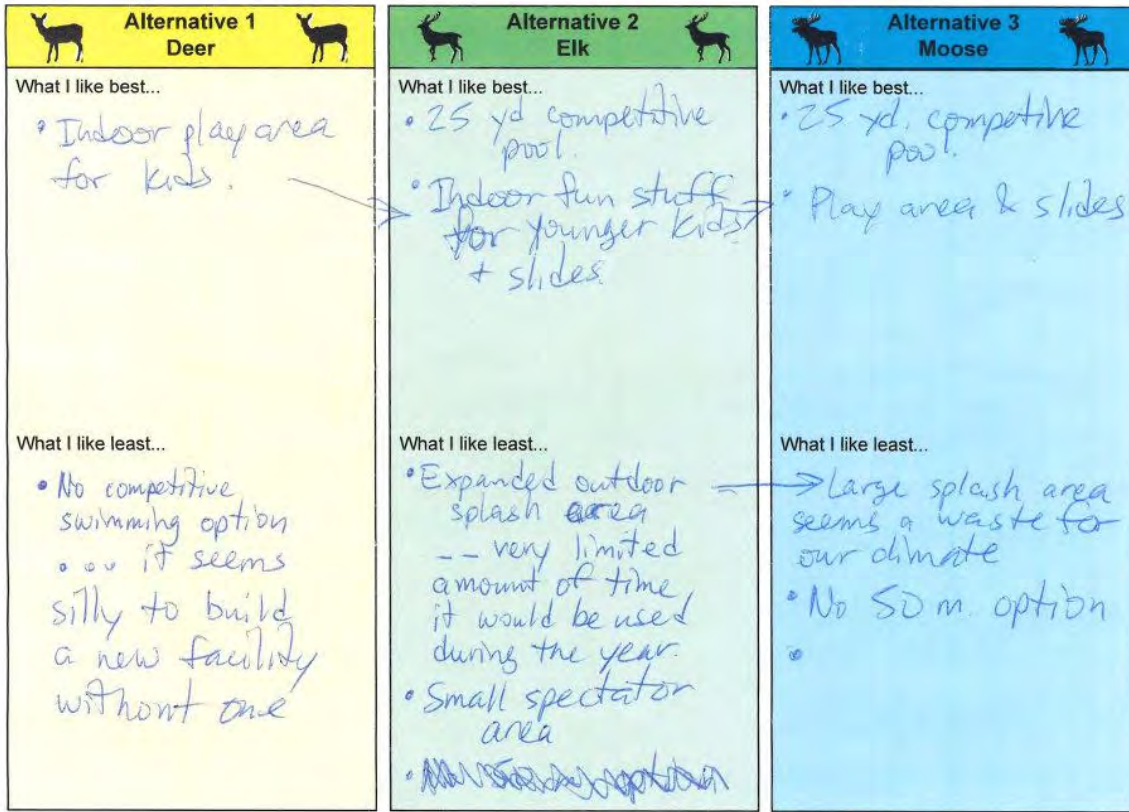 Alternative 1
Deer
What I like best...
• Indoor play area
for kids.
What I like least...
• No competitive
swimming option
... it seems
silly to build
a new facility
without one
Alternative 2
Elk
What I like best...
• 25 yd competitive
pool.
• Indoor fun stuff
for younger kids
+ slides.
What I like least...
• Expanded outdoor
splash area
-- very limited
amount of time
it would be used
during the year.
• Small spectator
area
•
Alternative 3
Moose
What I like best...
• 25 yd. competive
pool.
• Play area & slides
What I like least...
Large splash area
seems a waste for
our climate
• No 50 m. option
•